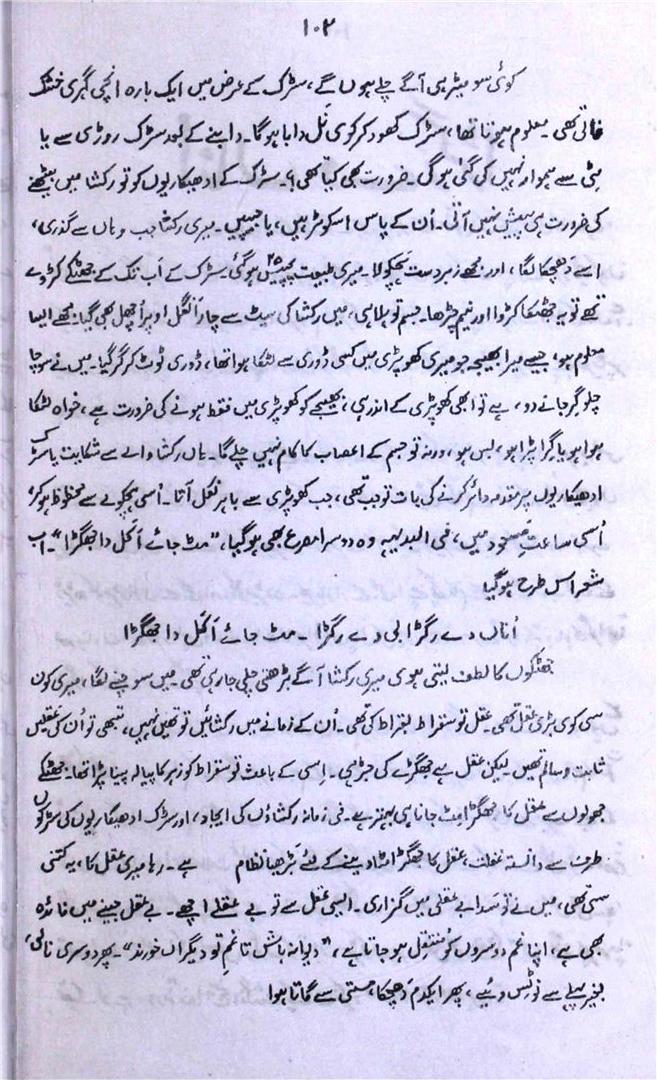 ۱۰۲
کوئی سو میٹر ہی آگے چلے ہوں گے، سڑک کے عرض میں ایک بارہ انچی گہری خشک
فالی تھی۔ معلوم ہوتا تھا، سڑک کھود کر کوئی نَل دابا ہوگا۔ دابنے کے بعد سڑک روڑی سے یا
مِٹی سے ہموار نہیں کی گئی ہوگی۔ ضرورت بھی کیا تھی؟۔ سڑک کے ادھیکاریوں کو تو رکشا میں بیٹھنے
کی ضرورت ہی پیش نہیں آتی۔ اُن کے پاس اسکوٹر ہیں، یا جیپیں۔ میری رکشا جب وہاں سے گذری،
اسے دھچکا لگا، اور مجھے زبردست ہچکولا۔ میری طبیعت پچیس ۲۵ ہوگئی۔ سڑک کے اَب تک کے جھٹکے کڑوے
تھے تو یہ جھٹکا کڑوا اور نیم چڑھا۔ جسم تو ہلا ہی، میں رکشا کی سیٹ سے چار اُنگل اوپر اُچھل بھی گیا۔ مجھے ایسا
معلوم ہو، جیسے میرا بھیجہ جو میری کھوپڑی میں کسی ڈوری سے لٹکا ہوا تھا، ڈوری ٹوٹ کر گر گیا۔ میں نے سوچا
چلو گر جانے دو، ہے تو ابھی کھوپڑی کے اندر ہی، بھیجے کو کھوپڑی میں فقط ہونے کی ضرورت ہے، خواہ لٹکا
ہوا ہو یا گرا پڑا ہو، بس ہو، ورنہ تو جسم کے اعصاب کا کام نہیں چلے گا۔ ہاں رکشا والے سے شکایت یا سڑک
ادھیکاریوں پر مقدمہ دائر کرنے کی بات تو جب تھی، جب کھوپڑی سے باہر نکل آتا۔ اُسی ہچکولے سے محظوظ ہو کر،
اُسی ساعتِ مسعود میں، فی البدیہہ وہ دوسرا مصرع بھی ہوگیا، "مٹ جائے اَکَل دا جھگڑا"۔ اب
شعر اس طرح ہوگیا
اُناں دے رگڑا بی دے رگڑا ۔ مٹ جائے اَکَل دا جھگڑا
جھٹکوں کا لطف لیتی ہوئی میری رکشا آگے بڑھتی چلی جارہی تھی۔ میں سوچنے لگا، میری کون
سی کوی بڑی عقل تھی۔ عقل تو سقراط بقراط کی تھی۔ اُن کے زمانے میں رکشائیں تو تھیں نہیں، تبھی تو اُن کی عقلیں
ثابت و سالم تھیں۔ لیکن عقل ہے جھگڑے کی جڑ ہی۔ اِسی کے باعث تو سقراط کو زہر کا پیالہ پینا پڑا تھا۔ جھٹکے
جھولوں سے عقل کا جھگڑا مِٹ جانا ہی بہتر ہے۔ فی زمانہ رکشاؤں کی ایجاد، اور سڑک ادھیکاریوں کی سڑکوں
طرف سے دانستہ غفلت، عقل کا جھگڑا مٹا دینے کے لئے بَڑھیا نظام ہے۔ رہا میری عقل کا، یہ کتنی
سی تھی، میں نے تو سَدا بے عقلی میں گزاری۔ ایسی عقل سے تو بے عقلے اچھے۔ بے عقل جینے میں فائدہ
بھی ہے، اپنا غم دوسروں کو مُنتقِل ہو جاتا ہے، "دیوانہ باش تا غمِ تو دیگراں خورند"۔ پھر دوسری نالی،
بغیر پہلے سے نوٹس دئیے، پھر ایکدم دَھچکا، مستی سے گاتا ہوا